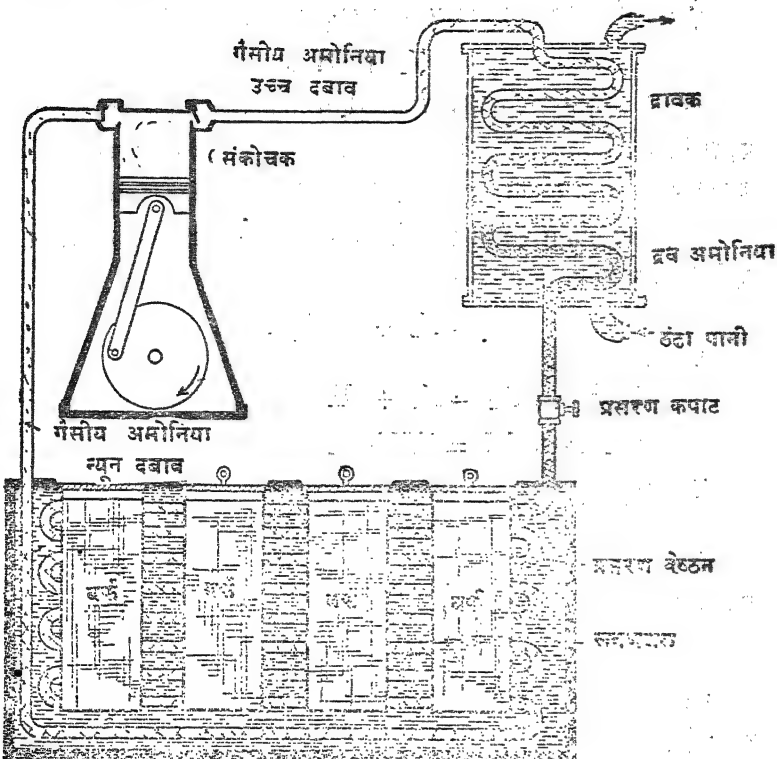 गैसीय अमोनिया
उच्च दबाव
द्रावक
संकोचक
द्रव अमोनिया
ठंढा पानी
प्रसरण कपाट
गैसीय अमोनिया
न्यून दबाव
बर्फ
बर्फ
बर्फ
बर्फ
प्रसरण वेष्ठन